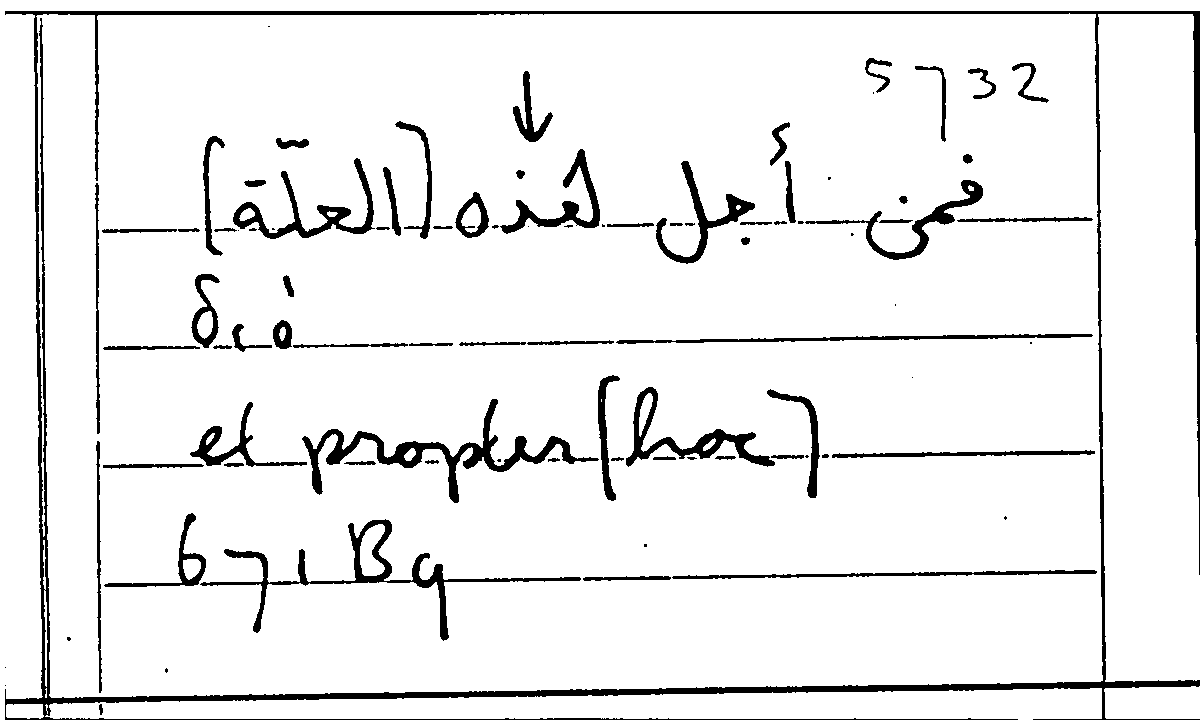 5732
↓
فمن أجل هذه [العلّة]
διὸ
et propter [hoc]
671 B9